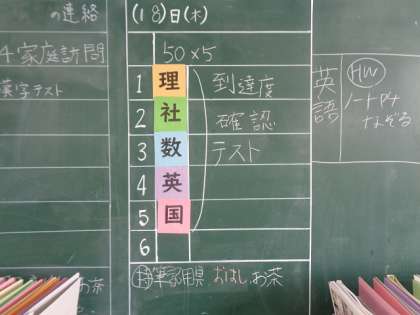 の連絡
4 家庭訪問
漢字テスト
お茶
(18)日(木)
50×5
1 理 到達度
2 社 確認
3 数 テスト
4 英
5 国
6
持 筆記用具 おはし、お茶
英語
HW
ノートP4
なぞる